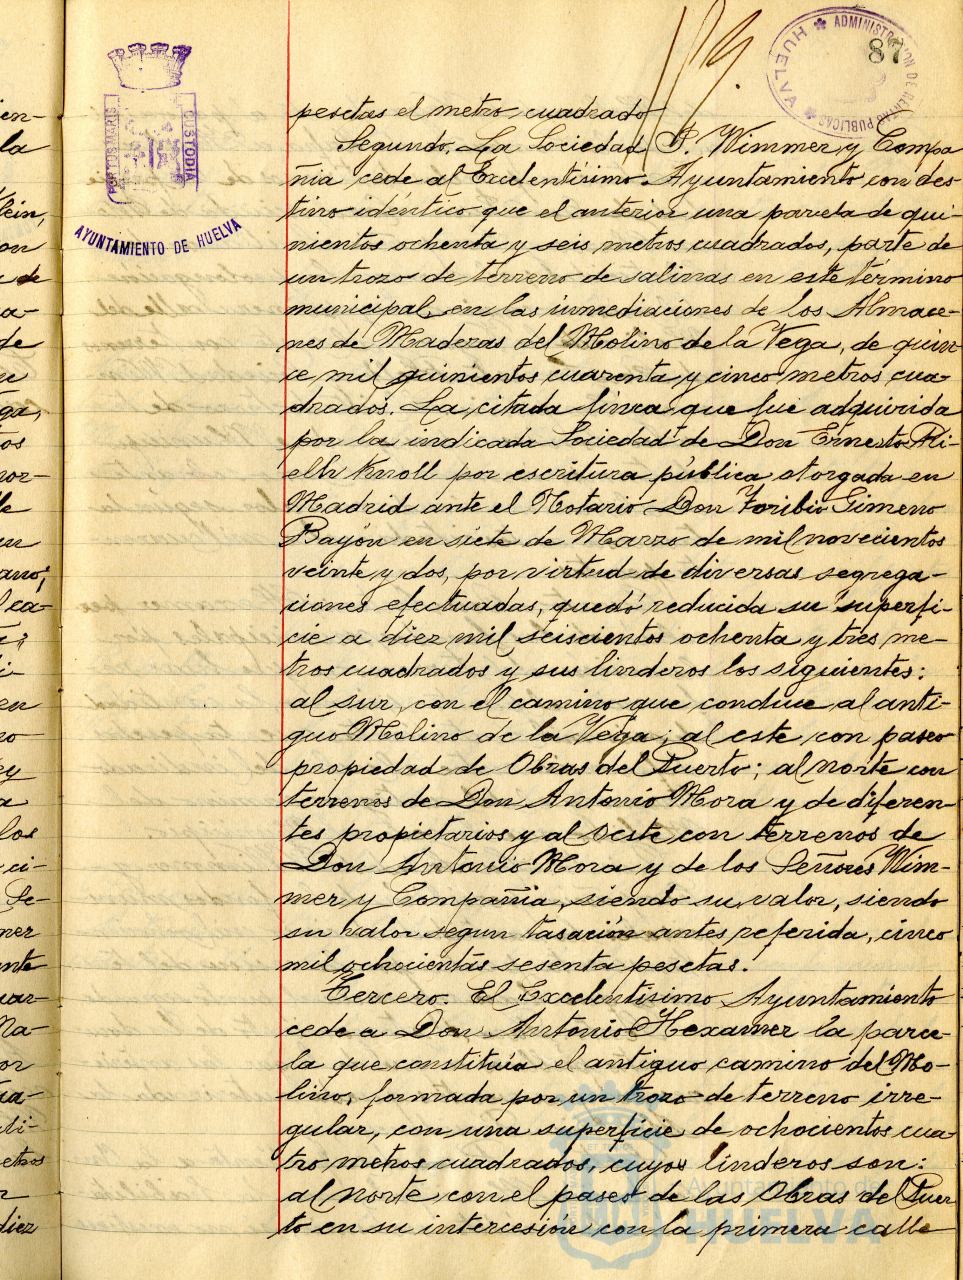 87
ADMINISTRACION DE RENTAS PUBLICAS
HUELVA
PORTUS MARIS
CUSTODIA
AYUNTAMIENTO DE HUELVA
pesetas el metro cuadrado
Segundo. La Sociedad P. Wimmer y Compa
ñia cede al Excelentísimo Ayuntamiento con des
tino idéntico que el anterior una parcela de qui-
nientos ochenta y seis metros cuadrados, parte de
un trozo de terreno de salinas en este término
municipal, en las inmediaciones de los Almace-
nes de Maderas del Molino de la Vega, de quin
ce mil quinientos cuarenta y cinco metros cua-
drados. La citada finca que fue adquirida
por la indicada Sociedad de Don Ernesto
Knoll por escritura pública otorgada en
Madrid ante el Notario Don Toribio Gimeno
Bayón en siete de Marzo de mil novecientos
veinte y dos, por virtud de diversas segrega-
ciones efectuadas, quedó reducida su superfi-
cie a diez mil seiscientos ochenta y tres me-
tros cuadrados y sus linderos los siguientes:
al sur, con el camino que conduce al anti-
guo Molino de la Vega; al este con paseo
propiedad de Obras del Puerto; al norte con
terrenos de Don Antonio Mora y de diferen-
tes propietarios y al Oeste con terrenos de
Don Antonio Mora y de los Señores Wim-
mer y Compañia, siendo su valor, siendo
su valor segun tasación antes referida, cinco
mil ochocientas sesenta pesetas.
Tercero. El Excelentisimo Ayuntamiento
cede a Don Antonio Hexamer la parce-
la que constituía el antiguo camino del Mo-
lino, formada por un trozo de terreno irre-
gular, con una superficie de ochocientos cua
tro metros cuadrados, cuyos linderos son:
al norte con el paseo de las Obras del Puer
to en su intercesión con la primera calle
Ayuntamiento de
HUELVA